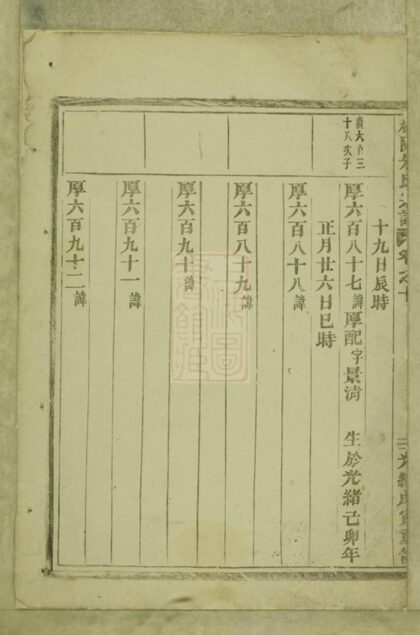 十九日辰時
廣六百三
十八次子
厚六百八十七諱厚配字景清　生於光緒己卯年
正月廿六日巳時
厚六百八十八諱
厚六百八十九諱
厚六百九十諱
厚六百九十一諱
厚六百九十二諱